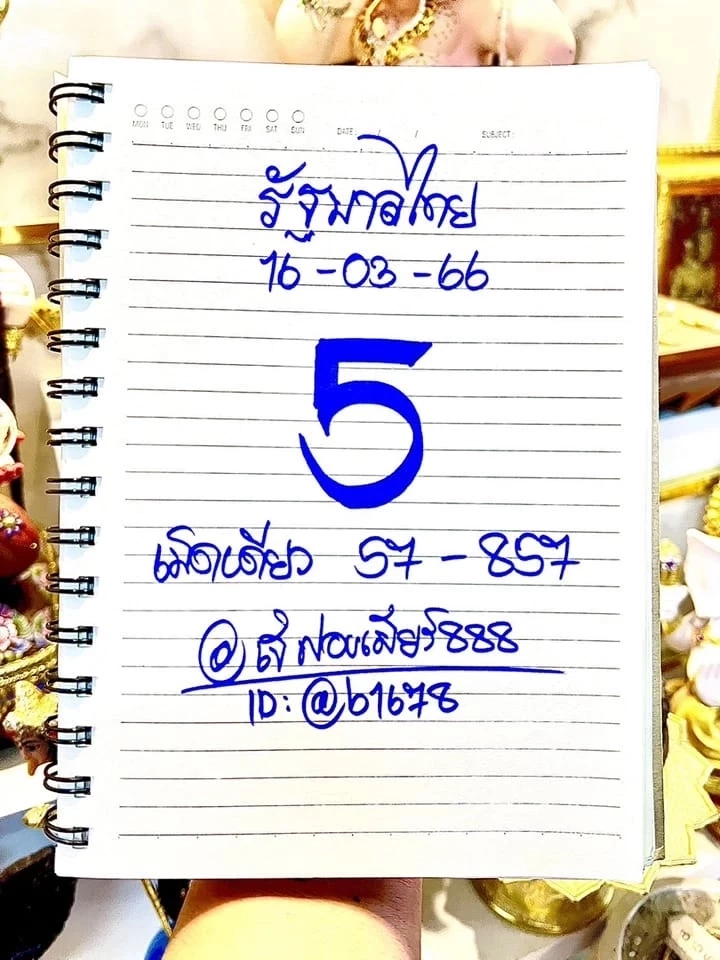 MON TUE WED THU FRI SAT SUN DATE: / / SUBJECT:
รัฐบาลไทย
16-03-66
5
เม็ดเดียว 57-857
@ 888
ID: @b1678